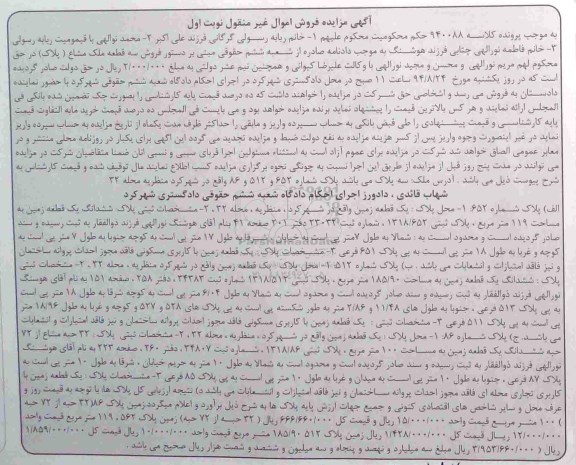 آگهی مزایده فروش اموال غیر منقول نوبت اول
به موجب پرونده کلاسه ۹۴۰۰۸۸ حکم محکومیت محکوم علیهم ۱- خانم ربابه رسولی گرگانی فرزند علی اکبر ۲- محمد نوالهی با قیمومیت ربابه رسولی
۳- خانم فاطمه نورالهی چتابی فرزند هوشنگ به موجب دادنامه صادره از شعبه ششم حقوقی مبنی بر دستور فروش سه قطعه ملک مشاع (پلاک) در حق
محکوم لهم مریم نورالهی و محسن و مجید نورالهی با وکالت علیرضا کیوانی و همچنین نیم عشر دولتی به مبلغ ۲/۰۰۰/۰۰۰ ریال در حق دولت صادر گردیده
است که در روز یکشنبه مورخ ۹۴/۸/۲۴ ساعت ۱۱ صبح در محل دادگستری شهرکرد در اجرای احکام دادگاه شعبه ششم حقوقی شهرکرد با حضور نماینده
دادستان به فروش می رسد و اشخاصی حق شرکت در مزایده را خواهند داشت که ده درصد قیمت پایه کارشناسی را بصورت چک تضمین شده بانکی فی
المجلس ارائه نمایند و هر کس بالاترین قیمت را پیشنهاد نماید برنده مزایده خواهد بود و می بایست فی المجلس ده درصد قیمت خرید مابه التفاوت قیمت
پایه کارشناسی و قیمت پیشنهادی را طی فیش بانکی به حساب سپرده واریز و مابقی را حداکثر ظرف مدت یکماه از تاریخ مزایده به حساب سپرده واریز
نماید در غیر اینصورت وجوه واریز پس از کسر هزینه مزایده به نفع دولت ضبط و مزایده تجدید می گردد این آگهی برای یکبار در روزنامه محلی منتشر و در
معابر عمومی الصاق خواهد شد شرکت در مزایده برای عموم آزاد است به استثناء مسئولین اجرا قربای سببی و نسبی انان ضمنا متقاضیان شرکت در مزایده
می توانند در مدت پنج روز قبل از مزایده از طریق این اجرا نسبت به چونگی نحوه برگزاری مزایده کسب اطلاع نمایند مال توقیف شده و قیمت کارشناس به
شرح پیوست ذیل می باشد . آدرس ملک: سه پلاک می باشد پلاک شماره ۶۵۲ و ۵۱۲ و ۸۶ واقع در شهرکرد منظریه محله ۳۲
شهاب قائدی ، دادورز اجرای احکام دادگاه شعبه ششم حقوقی دادگستری شهرکرد
الف) پلاک شماره ۶۵۲. ۱- محل پلاک : یک قطعه زمین واقع در شهرکرد ، منظریه ، محله ۳۲ . ۲- مشخصات ثبتی پلاک ششدانگ یک قطعه زمین به
مساحت ۱۱۹ متر مربع ، پلاک ثبتی ۱۳۱۸/۶۵۲ ، شماره ثبت ۲۳۰۳۴ دفتر ۲۰۱ صفحه ۴۱ بنام آقای هوشنگ نورالهی فرزند ذوالفقار به ثبت رسیده و سند
صادر گردیده است و محدود است به : شمالا به طول ۷متر پی است به خیابان، شرقا به طول ۱۷ متر پی است به کوچه جنوبا به طول ۷ متر پی است به
کوچه و غربا به طول ۱۸ متر پی است به پی پلاک ۶۵۱ فرعی ۳- مشخصات پلاک : یک قطعه زمین با کاربری مسکونی فاقد مجوز احداث پروانه ساختمان
و نیز فاقد امتیازات و انشعابات می باشد . ب) پلاک شماره ۵۱۲ ۱- محل پلاک : یک قطعه زمین واقع در شهرکرد منظریه ، محله ۳۲ ۲- مشخصات ثبتی
پلاک : ششدانگ یک قطعه زمین به مساحت ۱۸۵/۹۰ متر مربع ، پلاک ثبتی ۱۳۱۸/۵۱۲ شماره ثبت ۳۴۳۸۳ دفتر ۲۵۸ ، صفحه ۱۵۱ به نام آقای هوسنگ
نورالهی فرزند ذوالفقار به ثبت رسیده وسند صادر گردیده است و محدود است به شمالا به طول ۶/۰۴ متر پی است به کوچه شرقا به طول ۱۸ متر پی است
به پی پلاک ۵۱۳ فرعی ، جنوبا به طول های ۱۱/۴۸ و ۲/۸۶ متر به طور شکسته پی است به پی پلاک های ۵۲۸ و ۵۲۷ و کوچه و غربا به طول ۱۸/۹۶ متر
پی است به پی پلاک ۵۱۱ فرعی ۳- مشخصات ثبتی : یک قطعه زمین با کاربری مسکونی فاقد مجوز احداث پروانه ساختمان و نیز فاقد امتیازات و انشعابات
می باشند. ج) پلاک شماره ۸۶: ۱- محل پلاک: یک قطعه زمین واقع در شهرکرد ، منظریه ، محله ۳۲ ، ۲- مشخصات ثبتی پلاک : ۳۲ حبه مشاع از ۷۲
حبه ششدانگ یک قطعه زمین به مساحت ۱۰۰ متر مربع ، پلاک ثبتی ۱۳۱۸/۸۶ ، شماره ثبت ۳۴۸۰۷ ، دفتر ۲۶۰ ، صفحه ۲۲۳ به نام آقای هوشنگ
نورالهی فرزند ذوالفقار به ثبت رسیده و سند صادر گردیده است و محدود است به شمالا به طول ۱۰ متر به حریم خیابان ، شرقا به طول ۱۰ متر پی است به
پلاک ۸۷ فرعی ، جنوبا به طول ۱۰ متر پی است به میدان و غربا به طول ۱۰ متر پی است به پی پلاک ۸۵ فرعی ۳- مشخصات پلاک: یک قطعه زمین با
کاربری تجاری محله ای فاقد مجوز احداث پروانه ساختمان و نیز فاقد امتیازات و انشعابات می باشد د) نتیجه ارزیابی کل پلاک ها: با توجه به قیمت روز و
عرف محل و سایر شاخص های اقتصادی کنونی و جمیع جهات ارزش پایه پلاک ها به شرح ذیل براورد و اعلام میگردد زمین پلاک ۸۶(۳۲ حبه از ۷۲ حبه
) ۱۰۰ متر مربع قیمت واحد ۱۵/۰۰۰/۰۰۰ ریال و قیمت کل ۶۶۶/۶۶۰/۰۰۰ ریال ( ۳۲ حبه از ۷۲ حبه) زمین پلاک ۵۶۲ ، ۱۱۹ متر مربع قیمت واحد
۱۲/۰۰۰/۰۰۰ ریال قیمت کل ۱/۴۲۸/۰۰۰/۰۰۰ ریال زمین پلاک ۵۱۲ ۱۸۵/۹۰ متر مربع قیمت واحد ۱۰/۰۰۰/۰۰۰ ریال قیمت کل ۱/۸۵۹/۰۰۰/۰۰۰
ریال ( ۳/۹۵۳/۶۶۰/۰۰۰) ریال مبلغ سه میلیارد و نهصد و پنجاه و سه میلیون و ششصد و شصت هزار ریال صحیح می باشد .